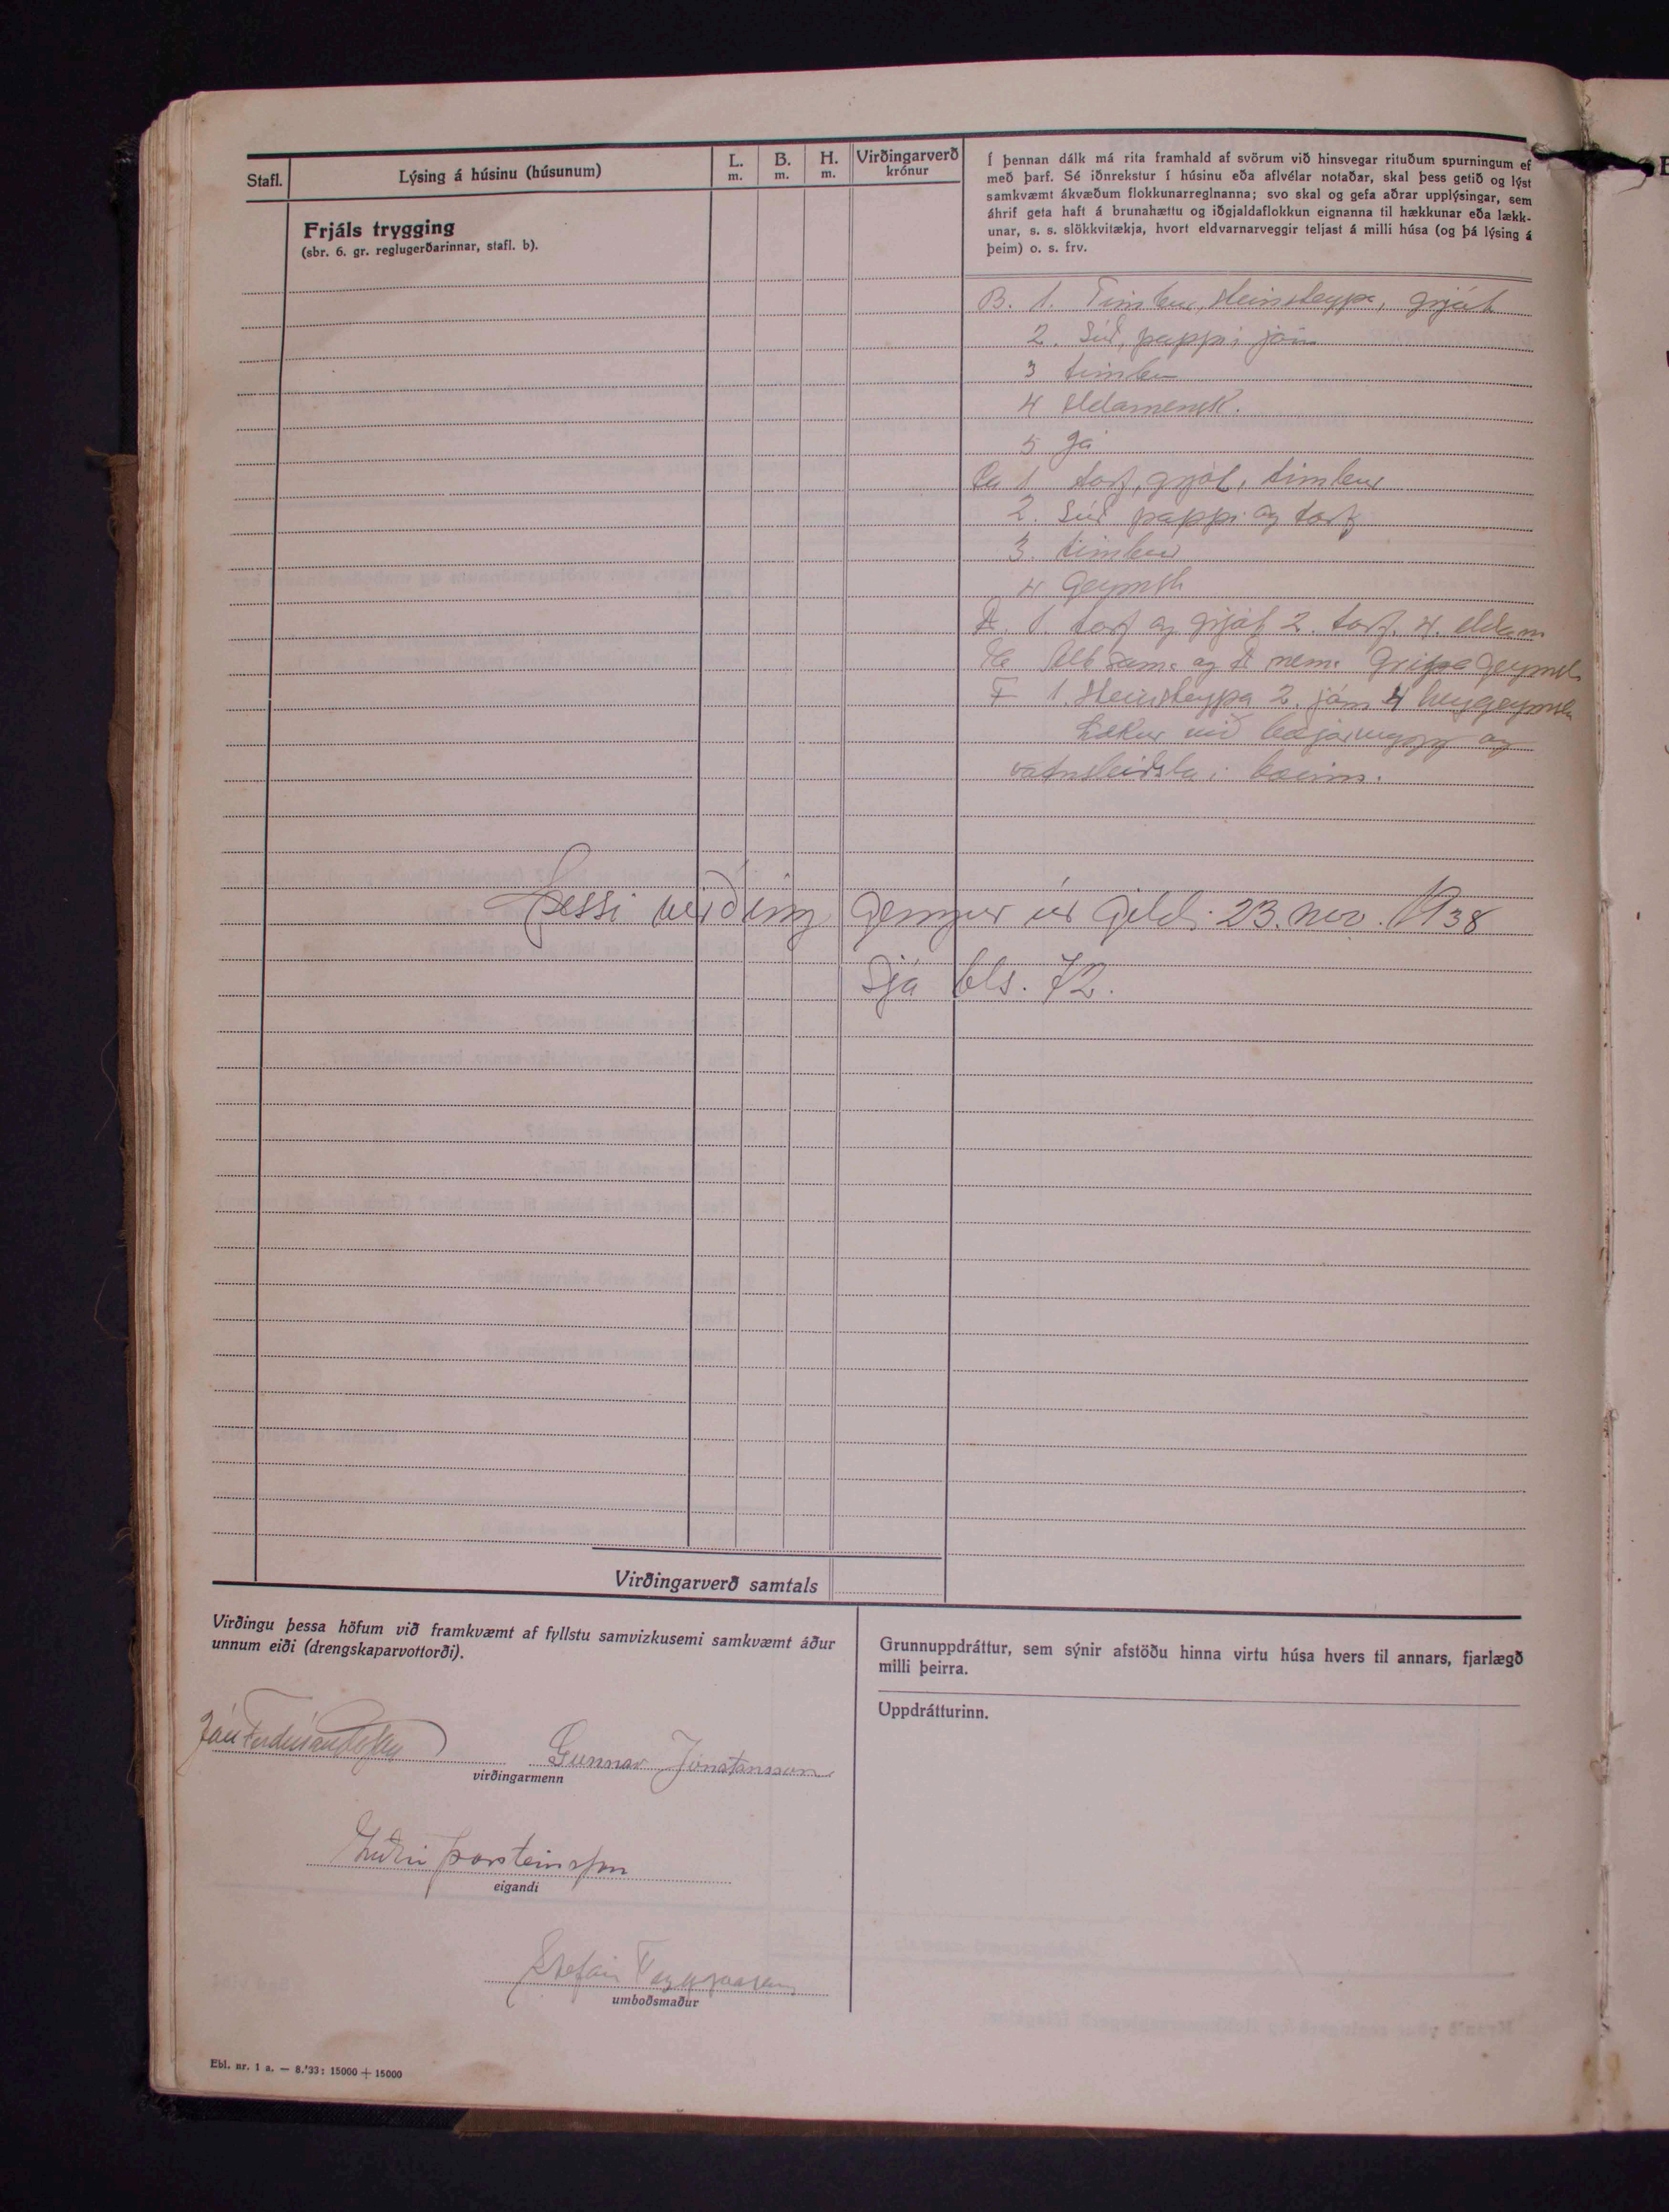 Stafl.
Lýsing á húsinu (húsunum)
L.
m.
B.
m.
H.
m.
Virðingarverð
krónur
Frjáls trygging
(sbr. 6. gr. reglugerðarinnar, stafl. b).
Í þennan dálk má rita framhald af svörum við hinsvegar rituðum spurningum ef
með þarf. Sé iðnrekstur í húsinu eða aflvélar notaðar, skal þess getið og lýst
samkvæmt ákvæðum flokkunarreglnanna; svo skal og gefa aðrar upplýsingar, sem
áhrif geta haft á brunahættu og iðgjaldaflokkun eignanna til hækkunar eða lækk-
unar, s. s. slökkvitækja, hvort eldvarnarveggir teljast á milli húsa (og þá lýsing á
þeim) o. s. frv.
B. 1. Timbur, steinsteypa, grjót
2. Súð, pappi járn
3 timbur
4 Eldamensk.
5 Já
1 torf, grjót, timbur
2. Súð pappi og torf
3. timbur
4 Geymsla
1. torf og grjót 2. torf. 4. eldam
sam. og nem. Gripa geymsl.
F 1. Steinsteypa 2. járn 4 heygeymsla
Lækur við bæjarvegg og
vatnsleiðsla í bæinn.
Þessi virðing gengur úr gildi 23. nov. 1938
Sjá bls. 72.
Virðingarverð samtals
Virðingu þessa höfum við framkvæmt af fyllstu samvizkusemi samkvæmt áður
unnum eiði (drengskaparvottorði).
Jón Ferdinandsson Gunnar Jónatansson
virðingarmenn
Þorsteinsson
eigandi
Stefán Tryggvason
umboðsmaður
Grunnuppdráttur, sem sýnir afstöðu hinna virtu húsa hvers til annars, fjarlægð
milli þeirra.
Uppdrátturinn.
Ebl. nr. 1 a. — 8.'33: 15000 + 15000